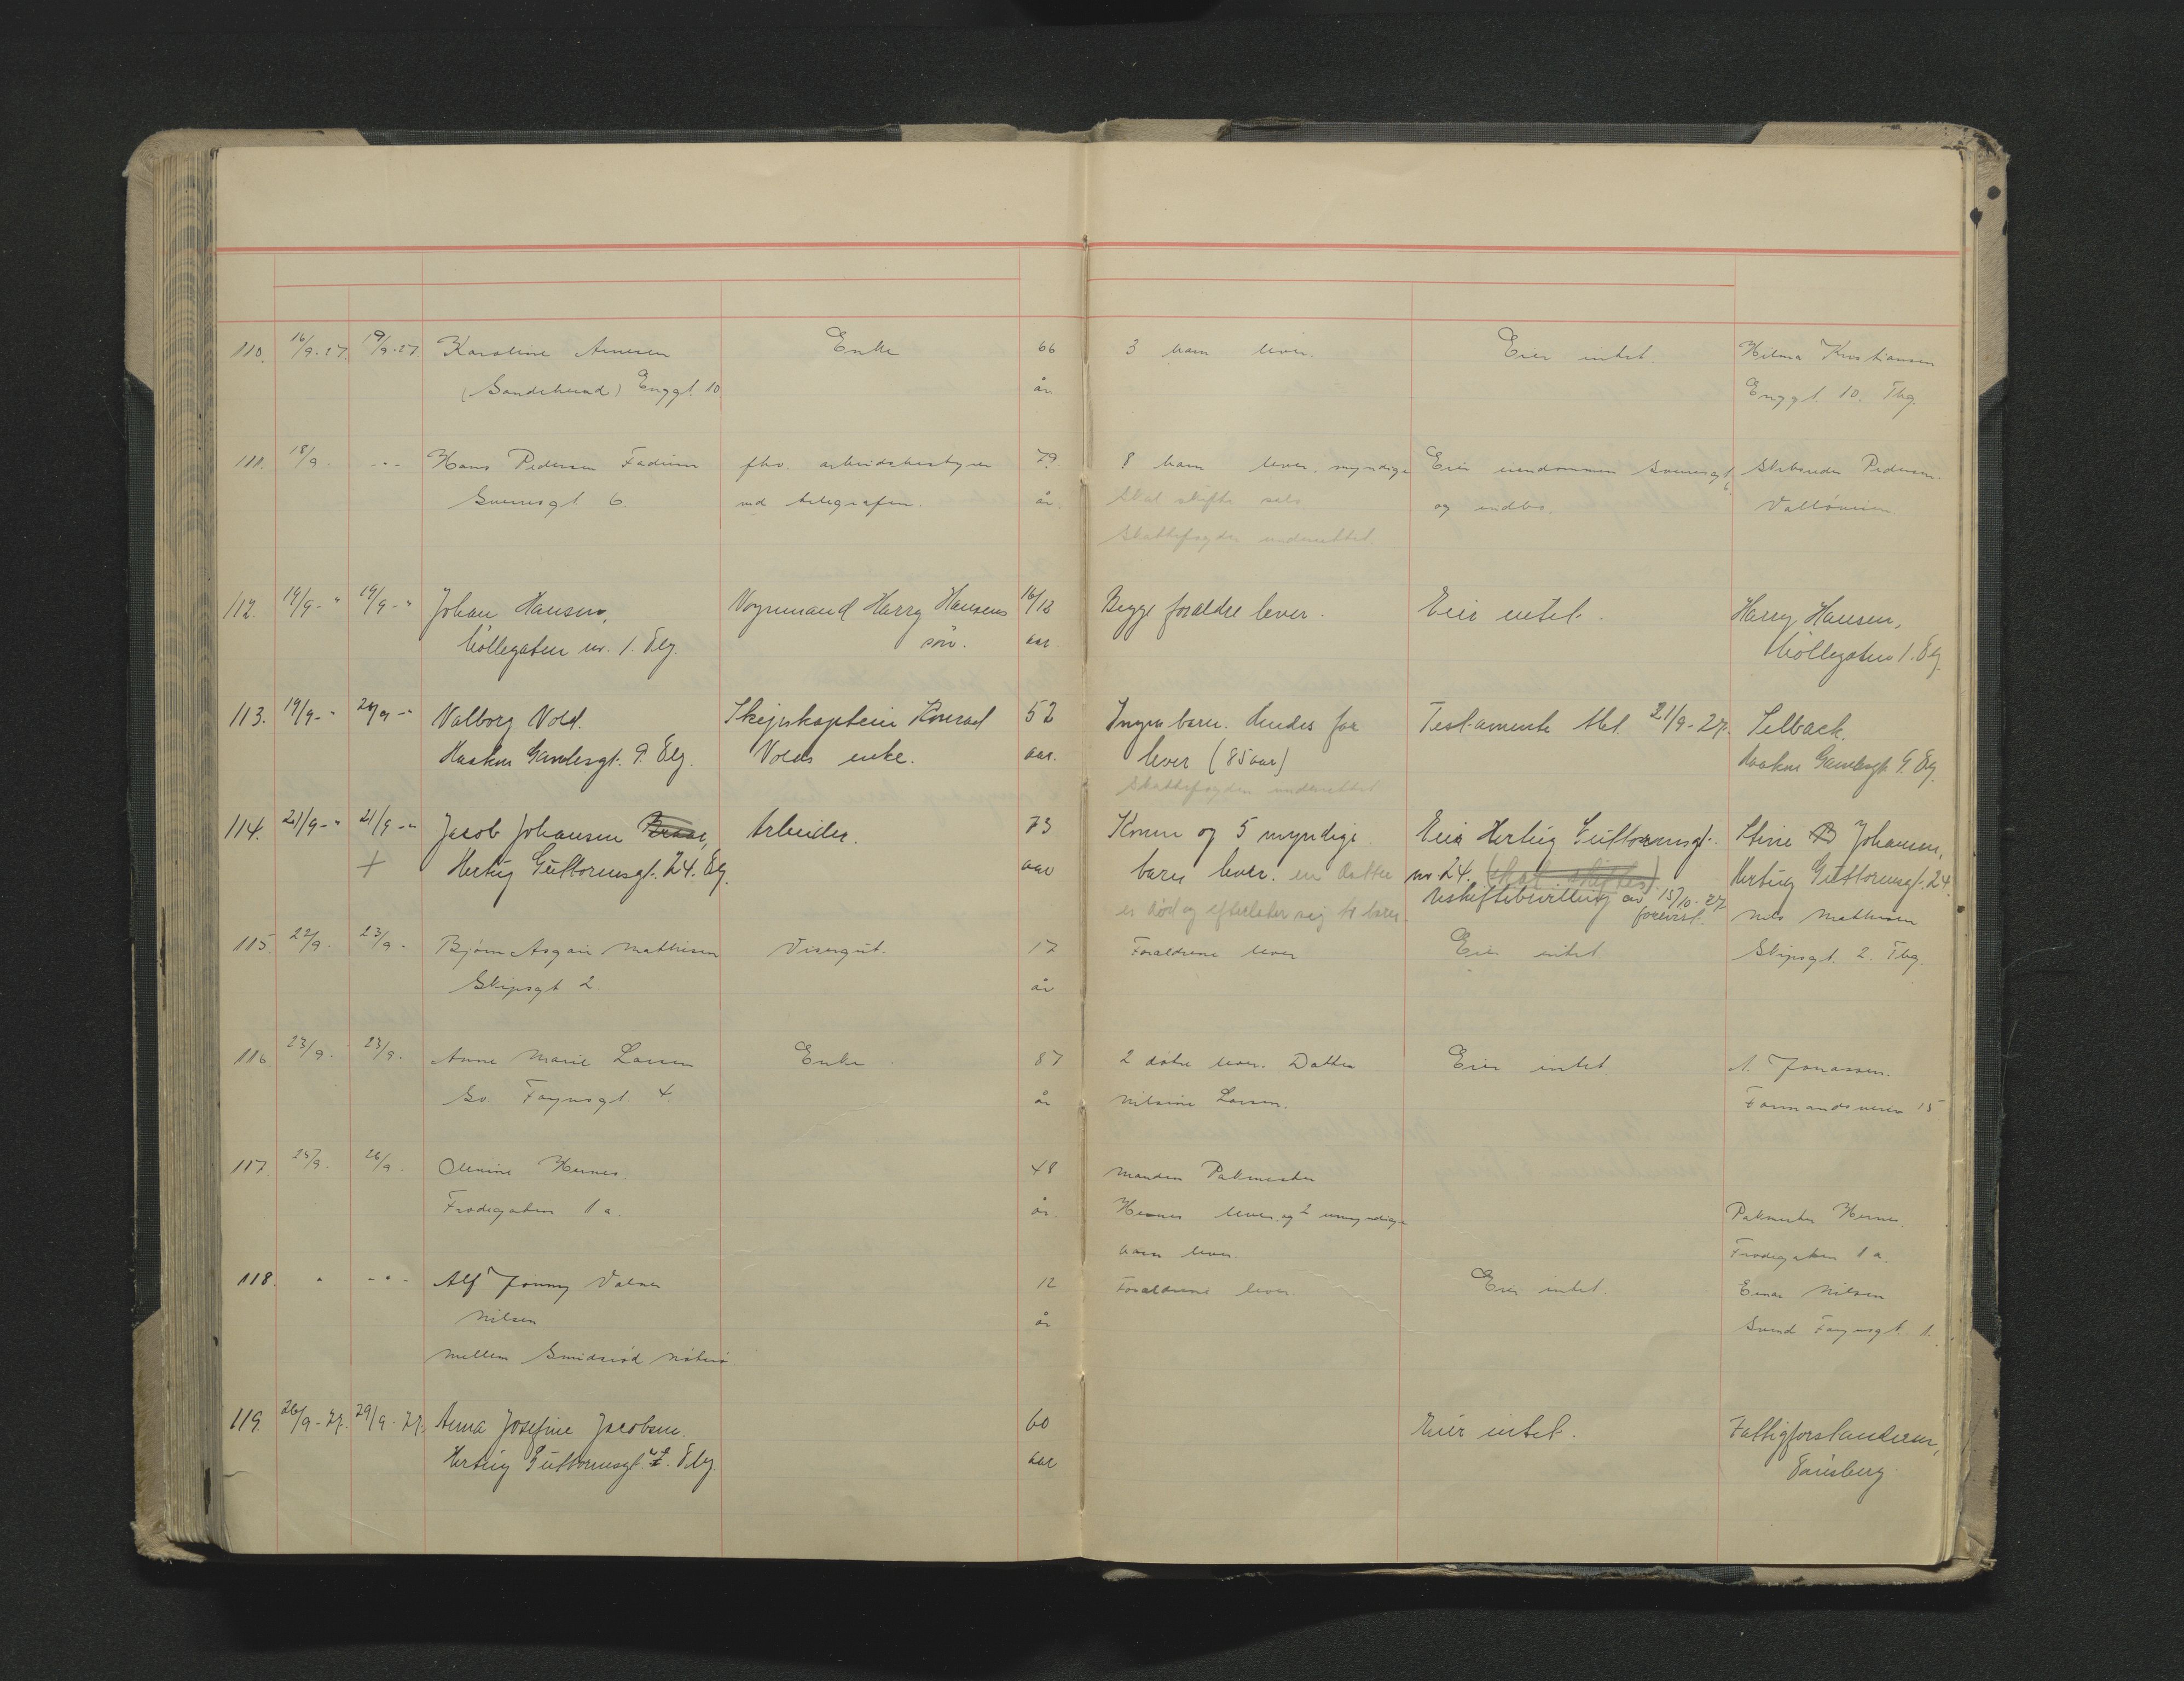 110. 16/9-27 19/9-27 Karoline Arnesen Enke 66 3 barn lever. Eier intet. Hilma Kristiansen
(Sandehued) Enggt. 10 år. Enggt. 10. Tbg.
111. 18/9. -"- Hans Pedersen Fadum fhv. arbeidsbestyrer 79 8 barn lever, myndige Eier eiendommen Sverresgt. 6 Pedersen.
Sverresgt. 6. ved telegrafen. år. Skal skifte selv og indbo. Valløveien
Skattefogden underrettet.
112. 19/9-" 19/9-" Johan Hansen, Vognmand Harry Hansens 16/12 Begge foraldre lever. Eier intet. Harry Hansen,
Möllegaten nr. 1. Tbg. sön. aar Möllegaten 1. Tbg.
113. 19/9-" 21/9-" Valborg Vold. Skipskaptein Konrad 52 Ingen barn. Hendes far Testamente tbl. 21/9-27. Selback.
Haakon Gamlesgt. 9. Tbg. Volds enke. aar. lever (85 aar) Haakon Gamlesgt. 9. Tbg.
Skattefogden underrettet
114. 21/9-" 21/9-" Jacob Johansen Arbeider. 73 Konen og 5 myndige Eier Hertug Guttormsgt. Stine Johansen,
+ Hertug Guttormsgt. 24. Tbg. aar barn lever. en datter nr. 24. (skal skiftes). Hertug Guttormsgt. 24
er död og efterlater sig to barn. Uskiftebevilling av 15/10-27 forevist.
Nils Mathisen
115. 22/9. 23/9. Bjørn Asgair Mathisen Visergut. 17 Foraldrene lever Eier intet Skipsgt. 2. Tbg.
Skipsgt. 2. år
116. 23/9. 23/9. Anne Marie Larsen Enke 87 2 døtre lever. Datter Eier intet A. Jonassen.
Sv. Foynsgt. 4. år Nilsine Larsen. Farmandsveien 15
117. 25/9. 26/9. Olenine Hernes. 48 Manden Pakmester
Frodegaten 1 a. år. Hernes lever og 2 umyndige Pakmester Hernes.
barn lever. Frodegaten 1 a.
118. " -"- Alf Jonny Valner 12 Foraldrene lever Eier intet. Einar Nilsen
Nilsen år Svend Foynsgt. 1.
Mellem Smidsrød Nøterø
119. 26/9-27. 29/9-27. Anna Josefine Jacobsen. 60 Eier intet. Fattigforstanderen,
Hertug Guttormsgt. Tbg. aar Tönsberg.